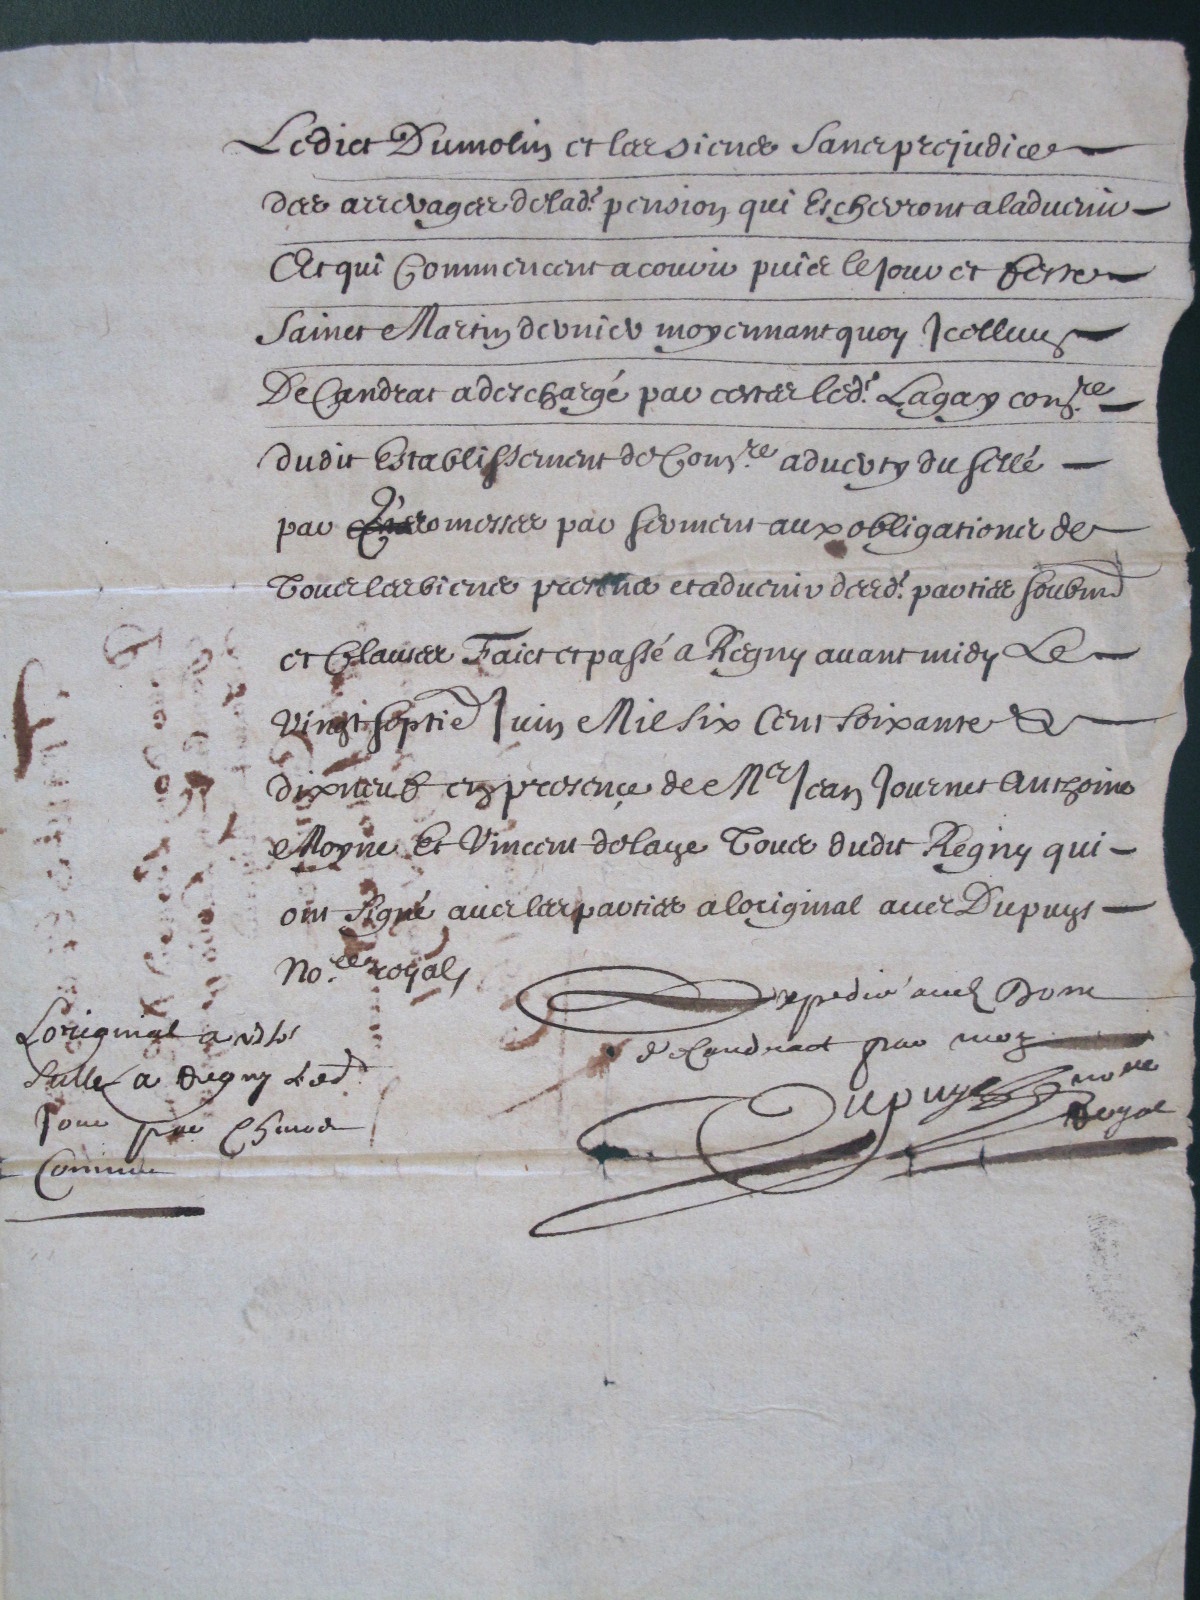 Ledict Dumolin et les siens sans prejudice
des arrerages de lad.e pension qui Escherront a laduenir
Et qui Commencent a courir puis le Jour et feste
Sainct Martin dernier moyennant quoy Icelluy
De Candrat a deschargé par cestes led.t Lagay
dudit Establissement de aduerty du sellé
par promesses par serment aux obligations de
Tous les biens presens et aduenir desd.s parties soubmd
et Clauses Faict et passé a Regny auant midy Le
vingt septie Juin Mil six Cent soixante &
dixneuf en presence de Me Jean Journet Anthoine
Moyne Et Vincent delaye Tous dudit Regny qui
ont Signé auec les parties a loriginal auec Dupuys
No.re royal
Expedié aud
de Candract par moy
Dupuys no.re
Royal
Loriginal a esté
sellé a Regny led
Jour par
Commis